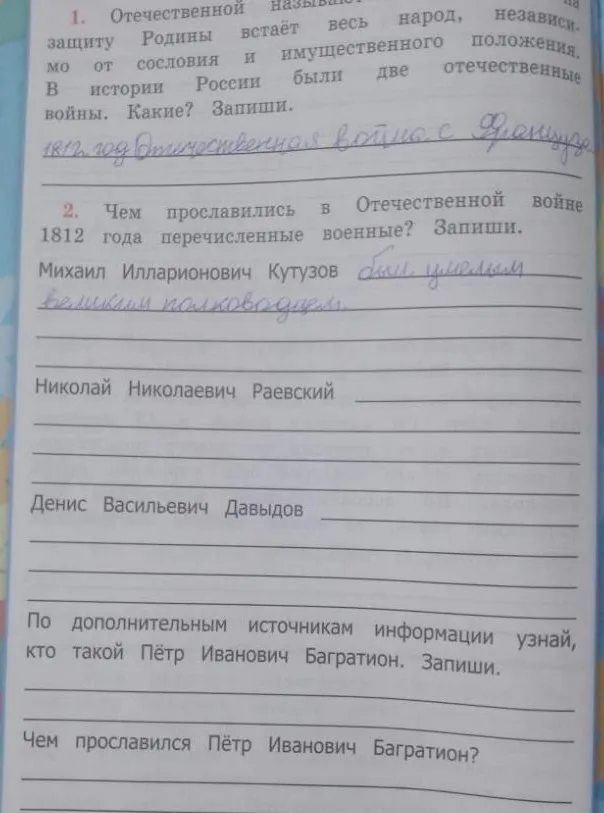 1. Отечественной называют на
защиту Родины встаёт весь народ, независи-
мо от сословия и имущественного положения.
В истории России были две отечественные
войны. Какие? Запиши.
1812 год Отечественная война с
2. Чем прославились в Отечественной войне
1812 года перечисленные военные? Запиши.
Михаил Илларионович Кутузов был умелым
великим полководцем.
Николай Николаевич Раевский
Денис Васильевич Давыдов
По дополнительным источникам информации узнай,
кто такой Пётр Иванович Багратион. Запиши.
Чем прославился Пётр Иванович Багратион?